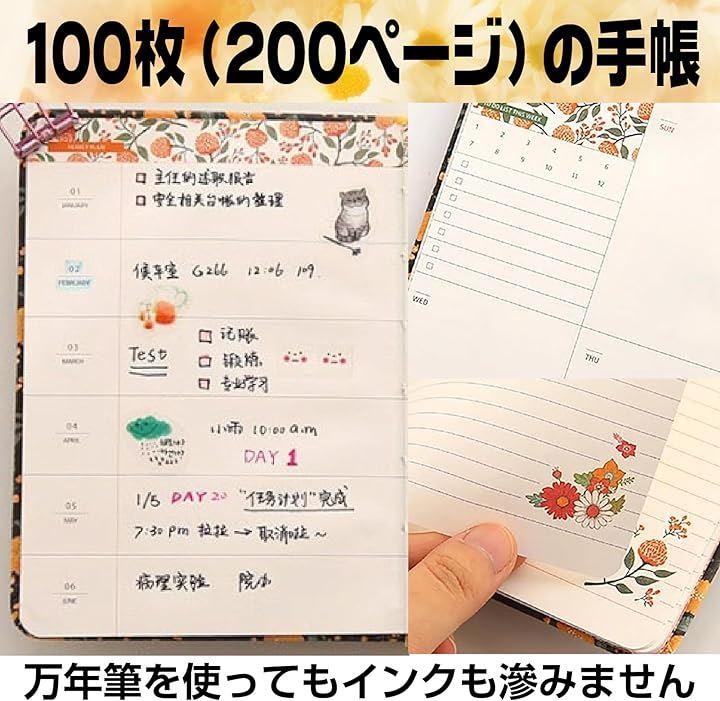 100枚（200ページ）の手帳
YEARLY PLAN
01
JANUARY
□ 主任的述职报告
□ 安全相关台帐的整理
02
FEBRUARY
候车室 G266 12:06 109.
03
MARCH
Test
□ 记账
□ 锻炼
□ 专业学习
04
APRIL
小雨 10:00 a.m
DAY 1
05
MAY
1/5 DAY 20 "任务计划"完成
7:30 pm 拉拉 → 取消啦~
06
JUNE
病理实验
TO DO LIST THIS WEEK
1 2 3 4 5 6
7 8 9 10 11 12
SUN
WED
THU
万年筆を使ってもインクも滲みません